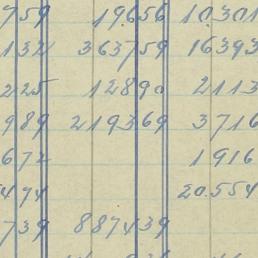 759 19656 10301
132 363759 16393
225 12890 2113
989 219369 3716
672 1916
494 20.554
739 887439